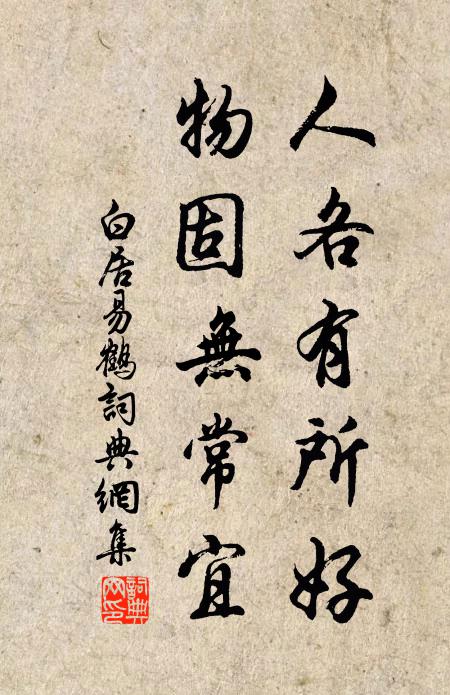 人各有所好
物固無常宜
白居易鶴詞典網集
詞典網印